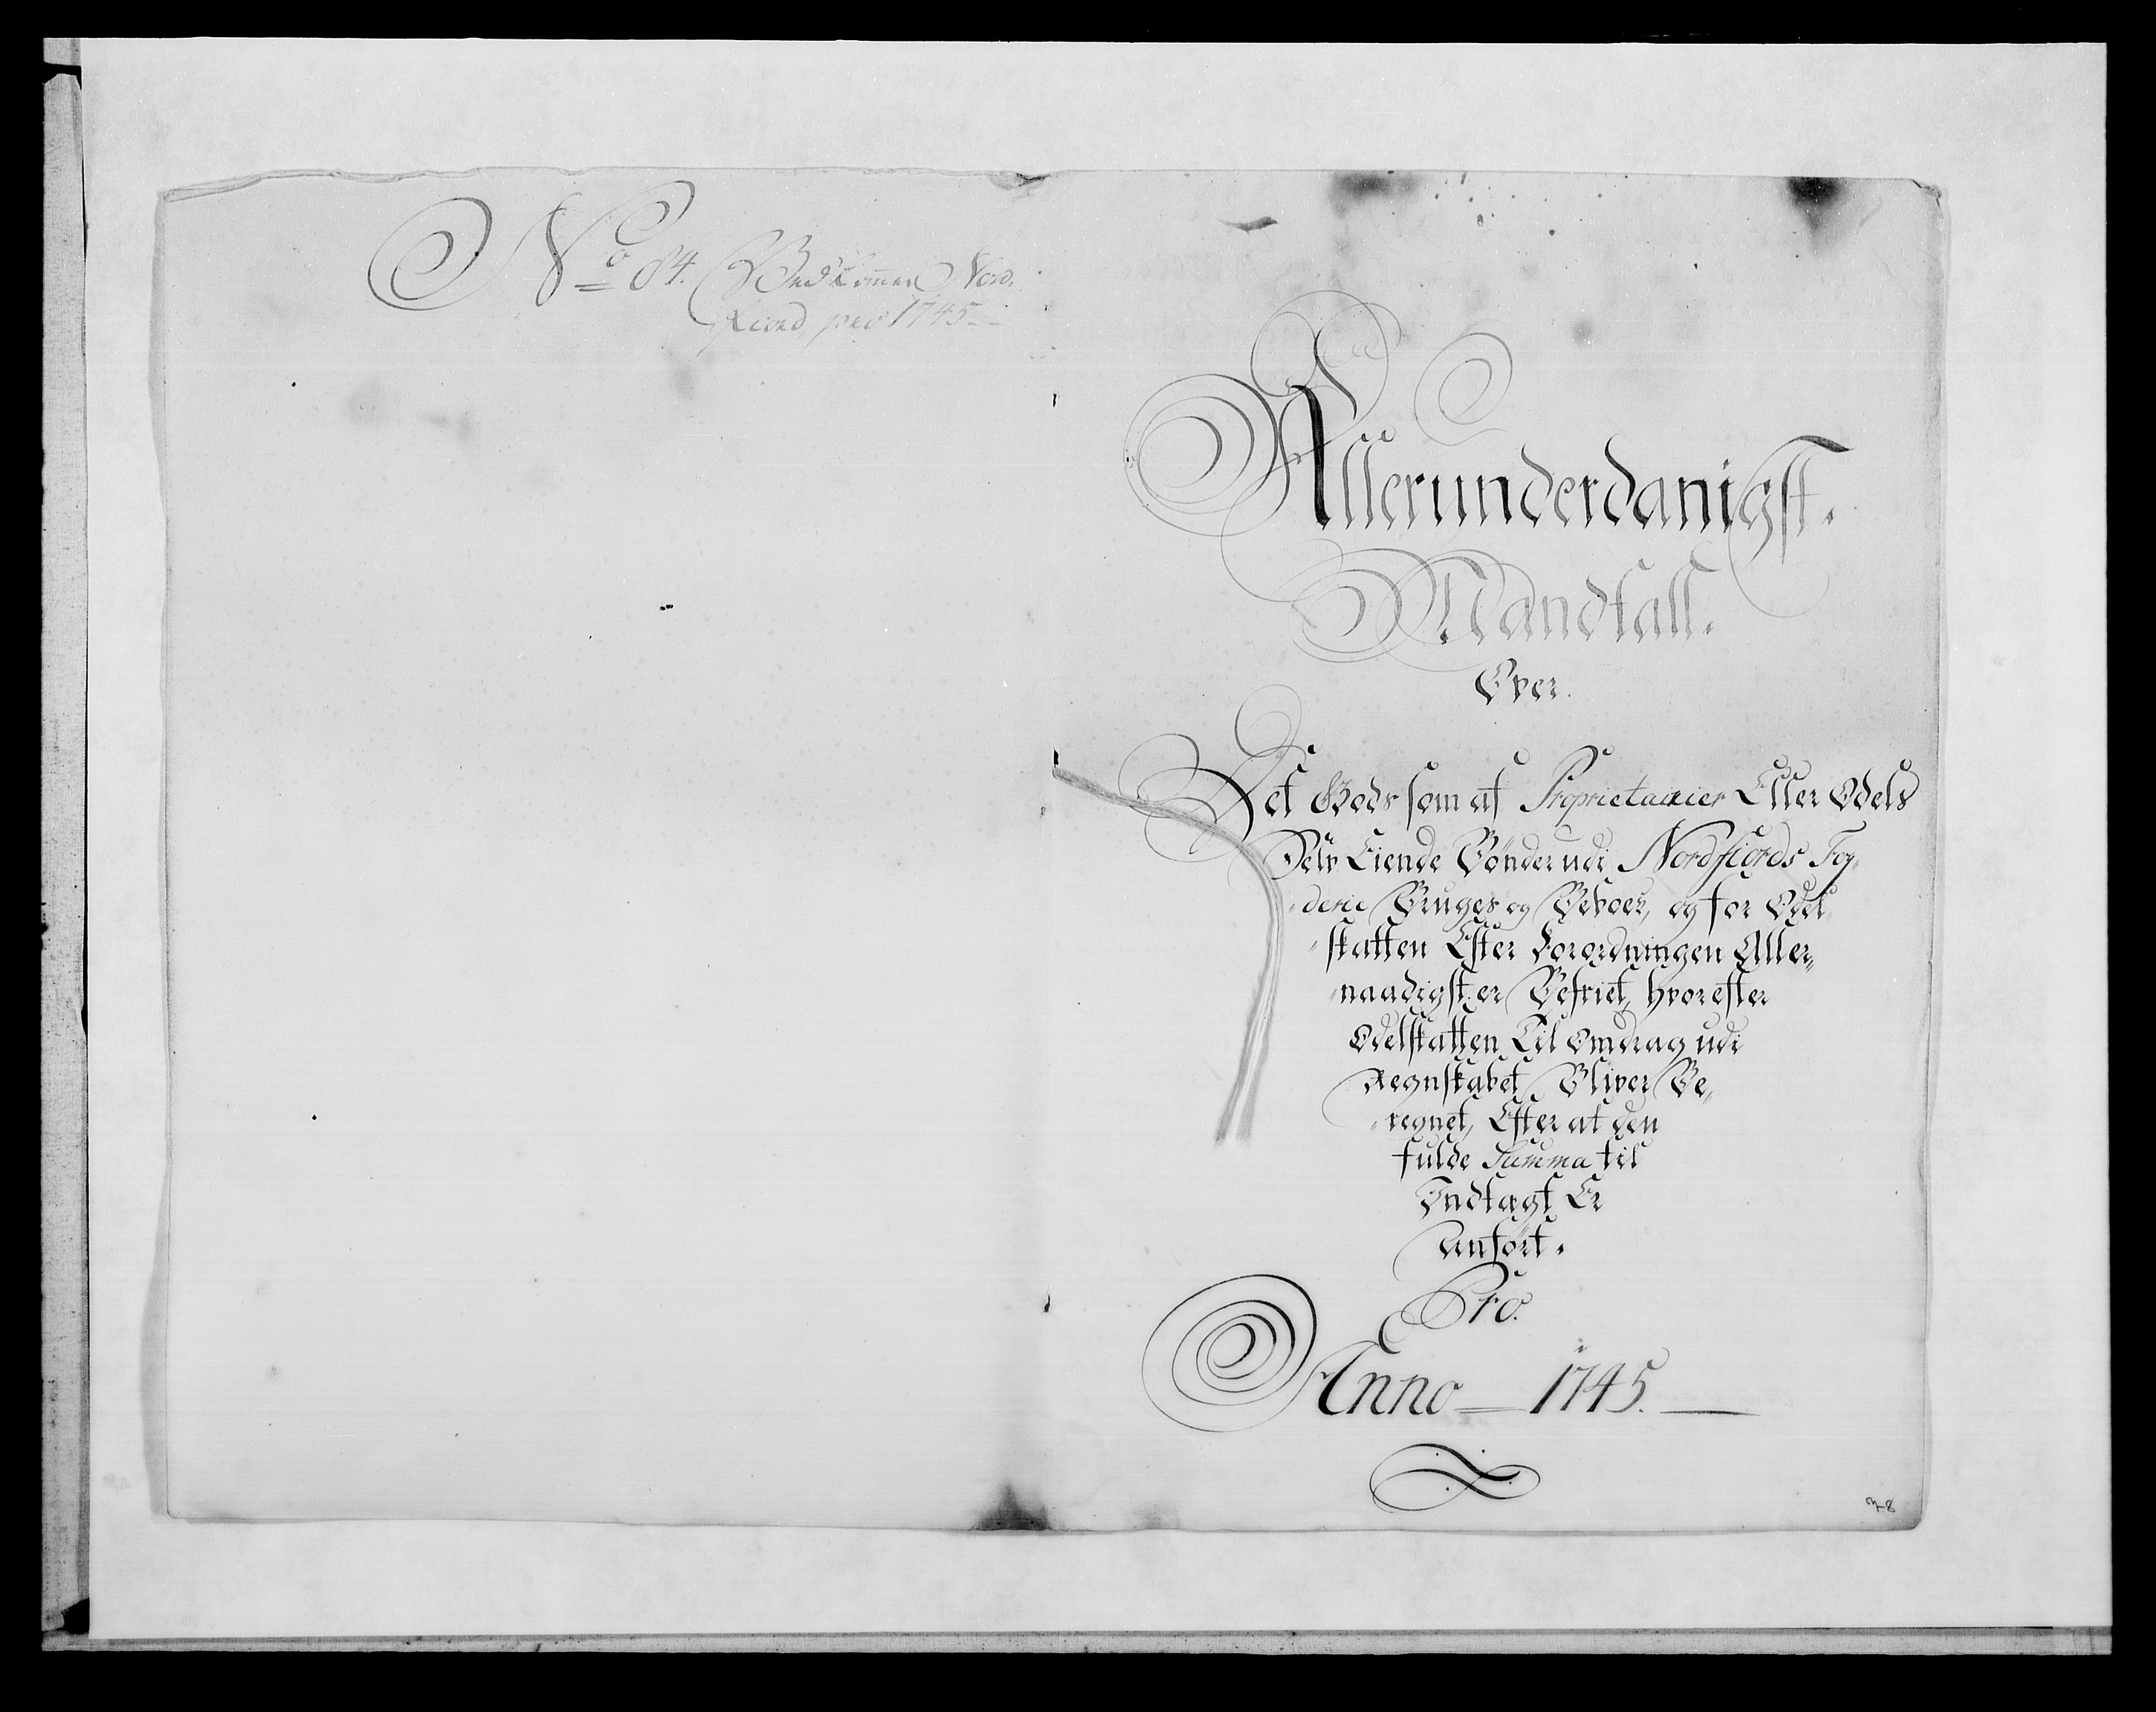 No 84. Vedkommer Nord-
fiord pro 1745
Allerunderdanigst.
Mandtall.
Over.
Det Gods som af Proprietairier Eller Odels
Selv Eiende Bönder udi Nordfiords Fog„
„derie Bruges og Beboes, og for Odel„
„skatten Efter Forordningen Aller„
„naadigst er Befriet, hvorefter
Odelskatten Til Omdrag udi
Regnskabet Bliver Be„
„regnet, Efter at den
fulde Summa til
Indtægt Er
Anfört.
Pro.
Anno 1745.